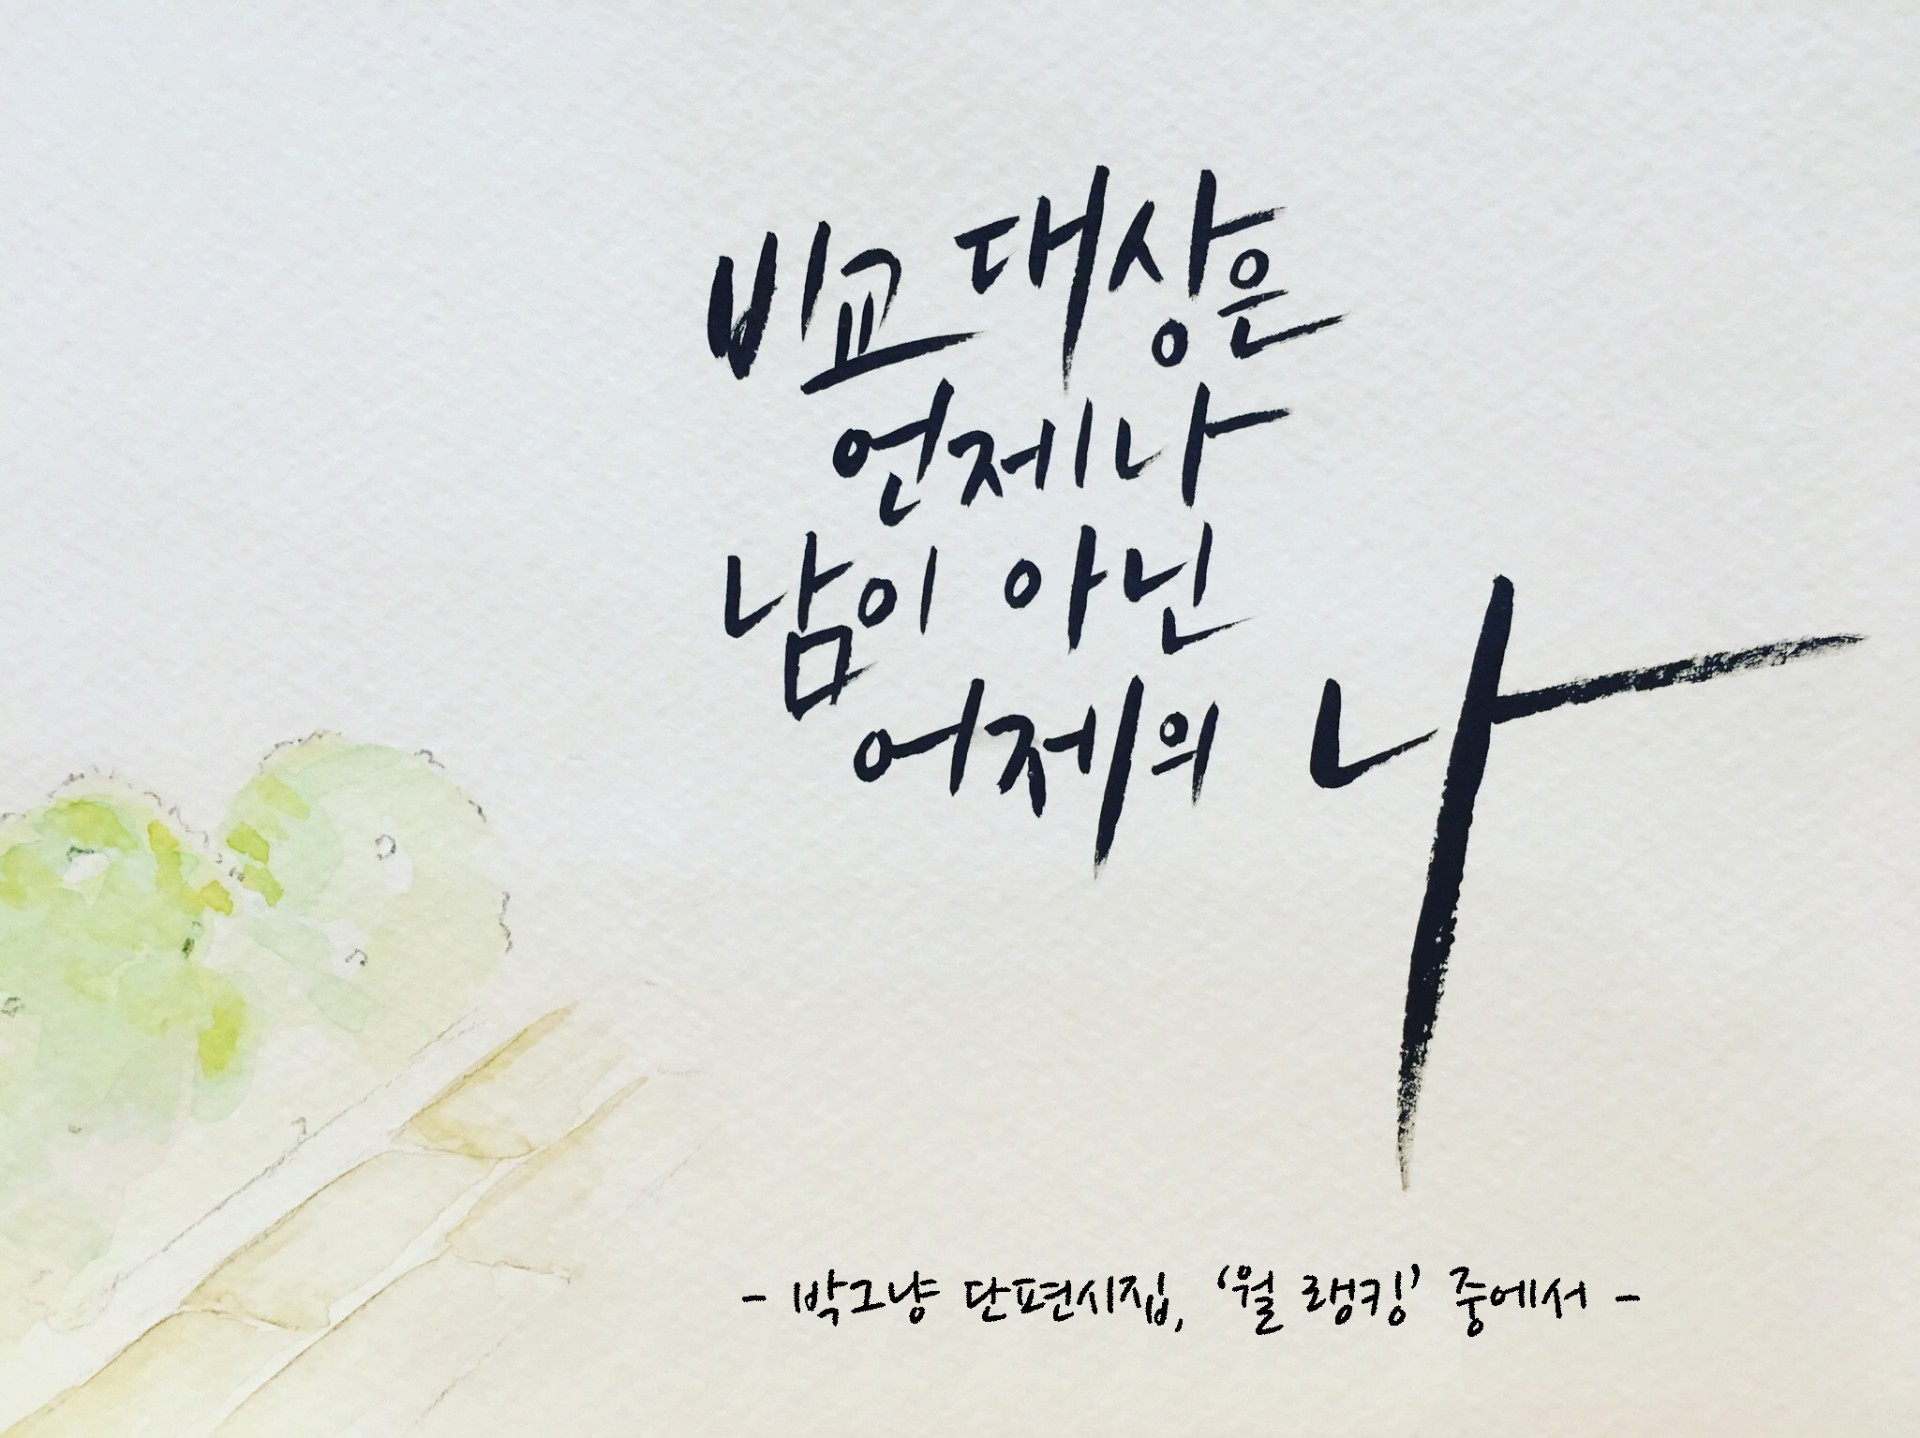 비교 대상은
언제나
남이 아닌
어제의 나
- 박그냥 단편시집, '월 랭킹' 중에서 -